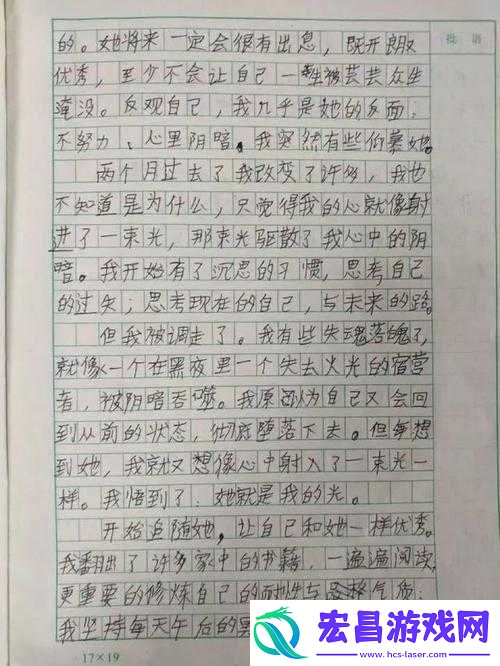 批语
的。她将来一定会很有出息，既开朗又
优秀，至少不会让自己一生被芸芸众生
淹没。反观自己，我几乎是她的反面，
不努力、心里阴暗。我突然有些仰慕她。
两个月过去了我改变了许多，我也
不知道是为什么，只觉得我的心就像射
进了一束光，那束光驱散了我心中的阴
暗。我开始有了沉思的习惯，思考自己
的过失；思考现在的自己，与未来的路。
但我被调走了。我有些失魂落魄了，
就像一个在黑夜里一个失去火光的宿营
者，被阴暗吞噬。我原以为自己又会回
到从前的状态，彻底堕落下去。但每想
到她，我就又想像心中射入了一束光一
样。我悟到了：她就是我的光。
开始追随她，让自己和她一样优秀。
我翻出了许多家中的书籍，一遍遍阅读，
更重要的修炼自己的耐性与气质，
我坚持每天午后的
17×19
宏昌游戏网
www.hcs-laser.com